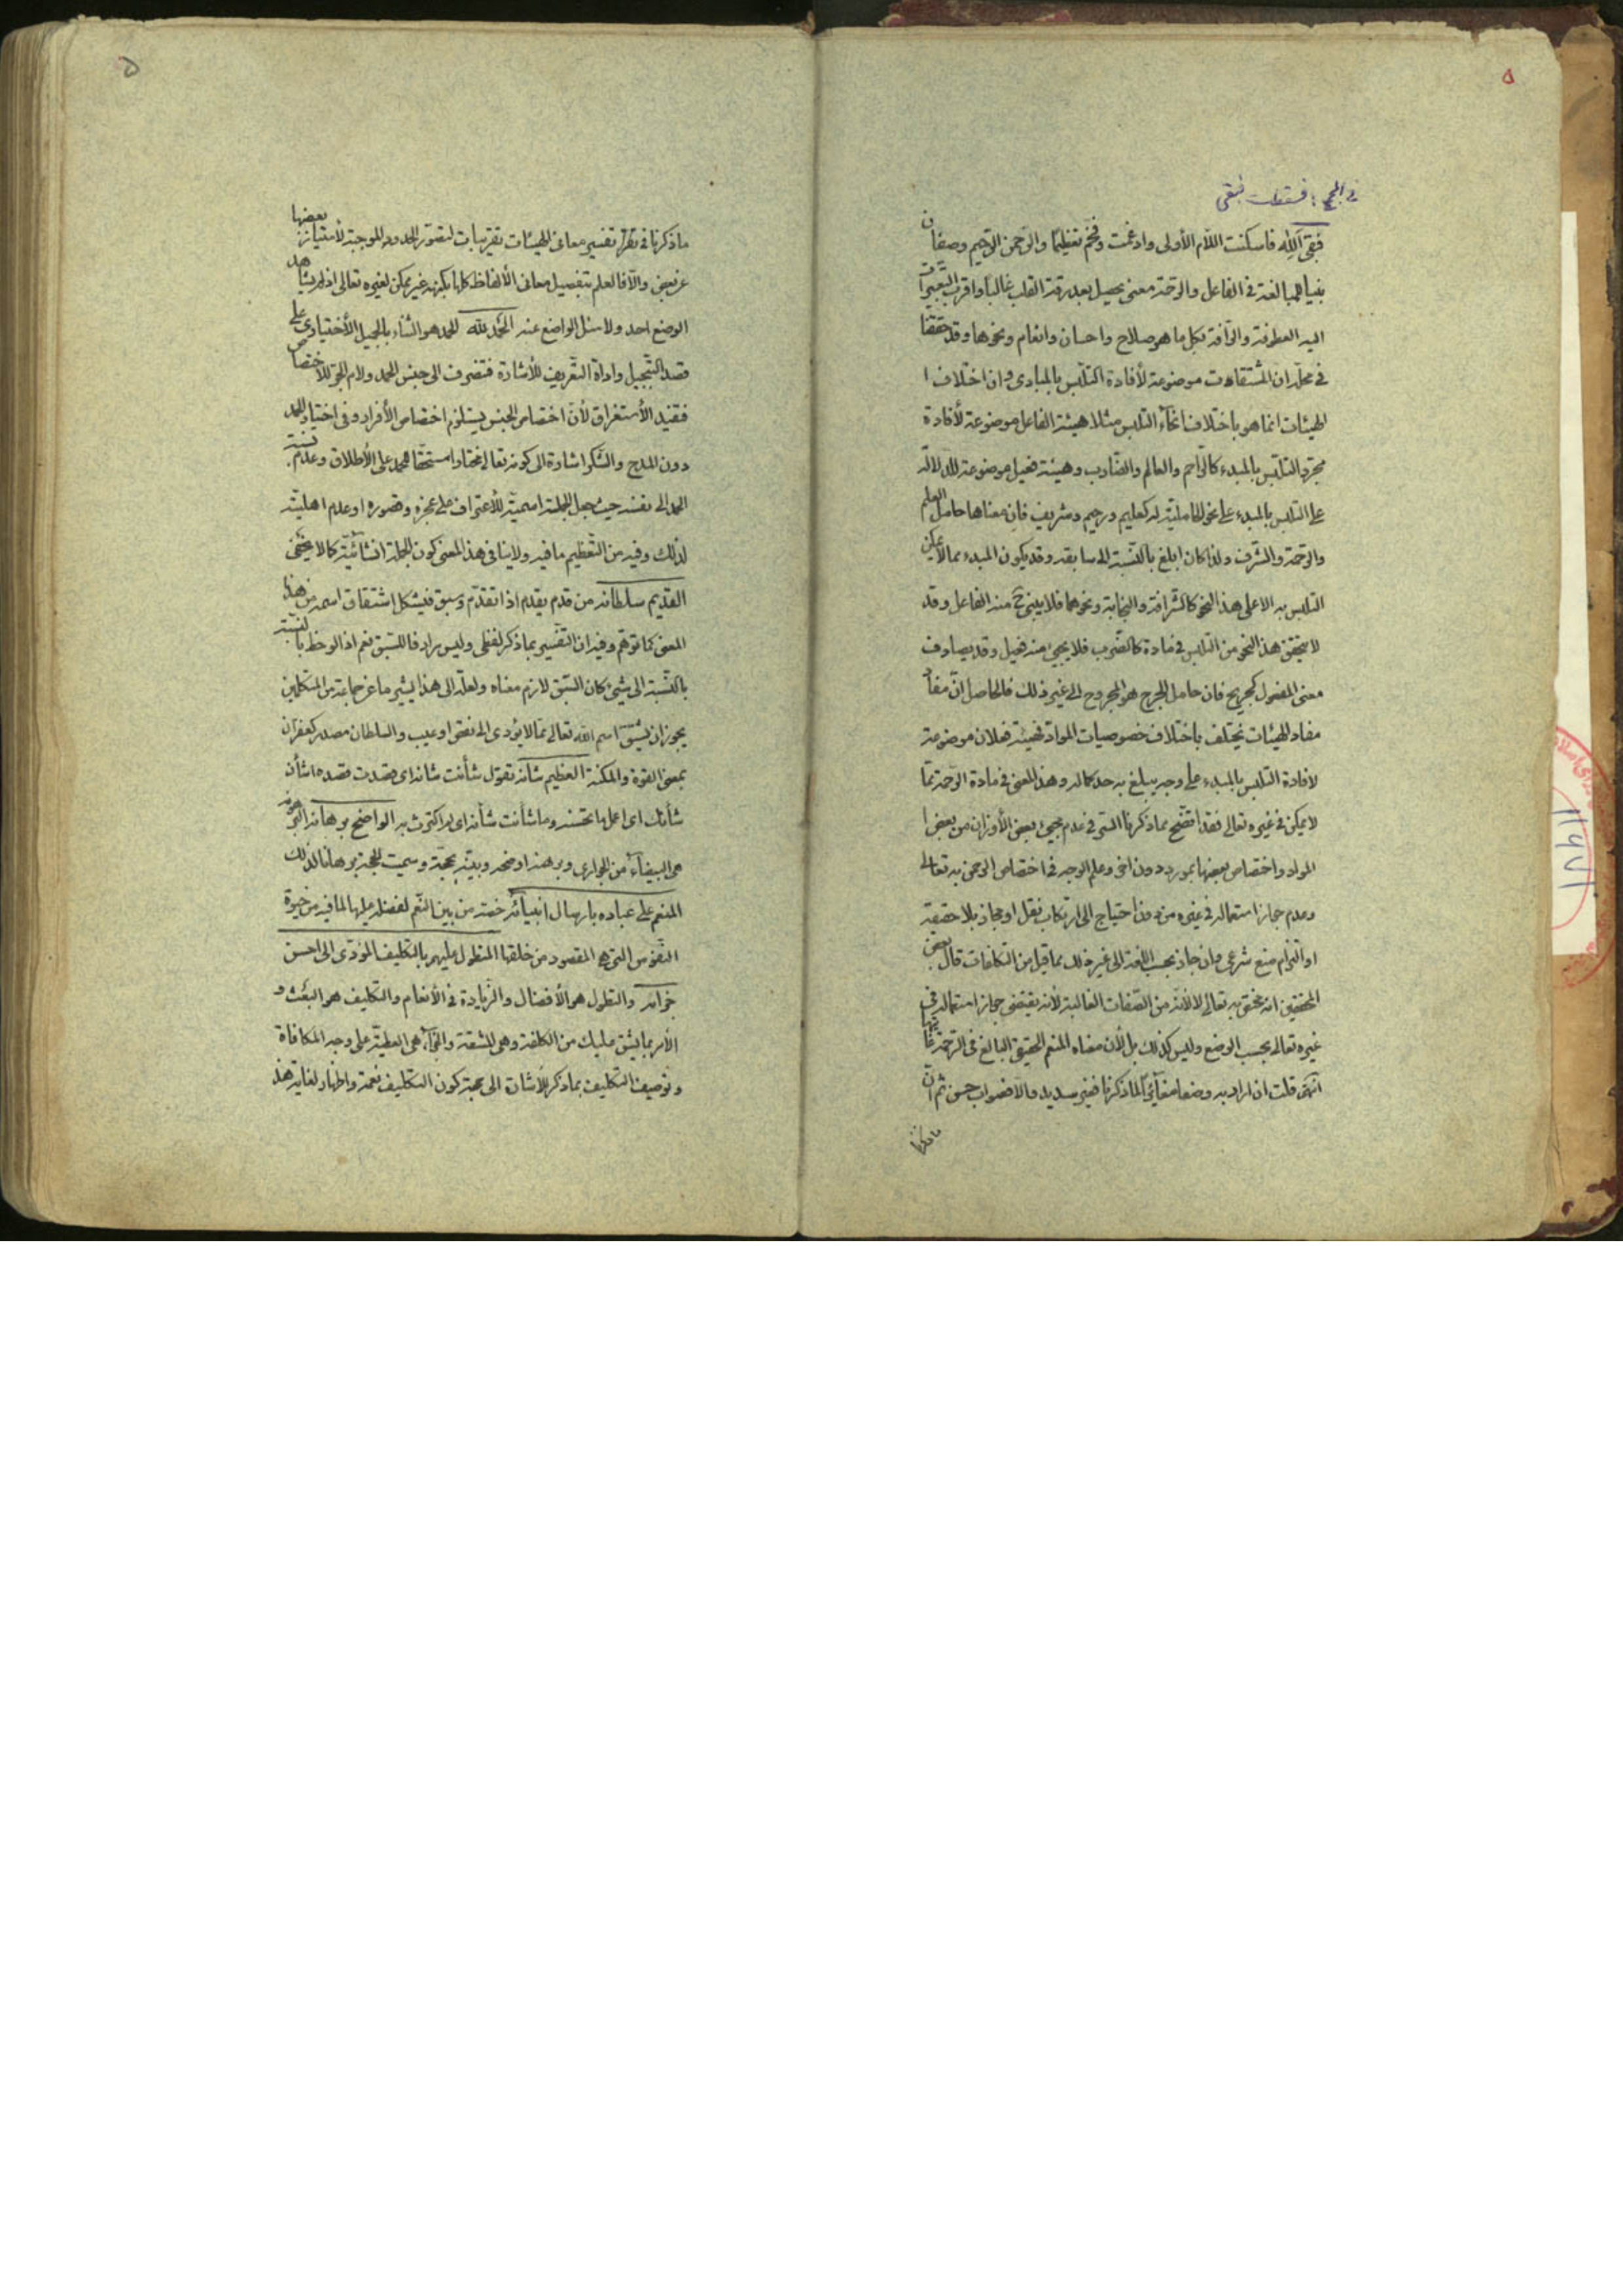 ۵
فبقی اَللّٰه فاسکنت اللّام الأولی وادغمت وفخّم تعظیمًا والرّحمن الرّحیم وصفان
بنیا للمبالغة فی الفاعل والرّحمة معنی یحصل بعد رقة القلب غالباً واقرب التعبیرات
الیه العطوفة والرّأفة بکل ما هو صلاح واحسان وانعام ونحوها وقد حققنا
فی محلّه ان المشتقات موضوعة لأفادة التلبّس بالمبادی وان اختلاف
الهیئات انما هو باختلاف انحاء التلبس مثلا هیئة الفاعل موضوعة لأفادة
مجرّد التلبّس بالمبدء کالرّاحم والعالم والضّارب وهیئة فعیل موضوعة للدّلالة
علی التلبس بالمبدء علی نحو الحاملیّة له کعلیم ورحیم وشریف فان معناها حامل العلم
والرّحمة والشّرف ولذا کان ابلغ بالنّسبة الی سابقه وقد یکون المبدء مما لا یمکن
التلبس به الا علی هذا النحو کالشّرافة والنجابة ونحوهما فلا یبنی ح منه الفاعل وقد
لا یتحقق هذا النحو من التلبس فی مادة کالضّرب فلا یجیئ منه فعیل وقد یصادف
معنی المفعول کجریح فان حامل الجرح هو المجروح الی غیر ذلک فالحاصل انّ مفا
مفاد الهیئات یختلف باختلاف خصوصیات المواد فهیئة فعلان موضوعة
لافادة التلبس بالمبدء علی وجه یبلغ به حد کماله وهذا المعنی فی مادة الرّحمة ممّا
لا یمکن فی غیره تعالی فقد اتضح بما ذکرنا السّر فی عدم مجیئ بعض الأوزان من بعض
المواد واختصاص بعضها بمورد دون اخر وعلم الوجه فی اختصاص الرّحمن به تعالی
وعدم جواز استعماله فی غیره من دون احتیاج الی ارتکاب نقل او مجاز بلا حقیقة
او التزام منع شرعی وان جاز بحسب اللغة الی غیر ذلک مما قیل من التکلفات قال بعض
المحققین انه مختص به تعالی لا لأنّه من الصّفات الغالبة لأنه یقتضی جواز استعماله فی
غیره تعالی بحسب الوضع ولیس کذلک بل لأن معناه المنعم الحقیقی البالغ فی الرّحمة غایتها
انتهی قلت ان اراد به وضعا مغایراً لما ذکرنا فغیر سدید والا فصواب حسن ثم انّ
ما ذکرنا
۵
ما ذکرنا فی تقریر تفسیر معانی الهیئات تقریبات لتصوّر الحدود الموجبة لأمتیاز بعضها
عن بعض والّا فالعلم بتفصیل معانی الألفاظ کلها بکنهه غیر ممکن لغیره تعالی اذ لم یشاهد
الوضع احد ولا سئل الواضع عنه الحَمد لله الحمد هو الثناء بالجمیل الأختیاری علی
قصد التّبجیل واداة التعریف للأشارة فتصرف الی جنس الحمد ولام الجرّ للأختصاص
فتفید الأستغراق لأنّ اختصاص الجنس یستلزم اختصاص الأفراد وفی اختیار الحمد
دون المدح والشّکر اشارة الی کونه تعالی مختارا مستحقا للحمد علی الأطلاق وعدم نسبة
الحمد الی نفسه حیث جعل الجملة اسمیّة للأعتراف علی عجزه وقصوره او عدم اهلیّته
لذلک وفیه من التّعظیم ما فیه ولا ینافی هذا المعنی کون الجملة انشائیّة کما لا یخفی
القدیم سلطانه من قدم یقدم اذا تقدّم وسبق فیشکل اشتقاق اسمه من هذا
المعنی کما توهّم وفیه ان التّفسیر بما ذکر لفظی ولیس مرادفا للسّبق نعم اذا لوحظ بالنسبة
بالنّسبة الی شیئ کان السّبق لازم معناه ولعلّه الی هذا یشیر ما عن جماعة من المتکلمین
یجوز ان یشتقّ اسم الله تعالی ممّا لا یؤدی الی نقص او عیب والسلطان مصدر کغفران
بمعنی القوة والمکنة العظیم شأنه تقول شأنت شانه ای قصدت قصده واشأن
شأنک ای اعمل ما تحسنه وما شأنت شأنه ای لم اکترث به الواضح برهانه البرهونه
هی البیضاء من الجواری وبرهنه اوضحه وبیّنه بحجّة وسمیت الحجة برهانا لذلک
المنعم علی عباده بارسال انبیائه خصّه من بین النّعم لفضله علیها لما فیه من حیوة
النفوس التی هی المقصود من خلقها المتطول علیهم بالتکلیف المؤدّی الی احسن
جزائه والتطول هو الأفضال والزّیادة فی الأنعام والتکلیف هو البعث و
الأمر بما یشق علیک من الکلفة وهی المشقة والجزآء هی العطیّة علی وجه المکافاة
وتوصیف التکلیف بما ذکر للأشارة الی جهة کون التکلیف نعمة واظهار لغایة هذ